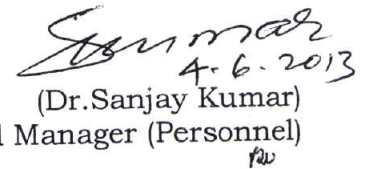 Skumar
4.6.2013
(Dr.Sanjay Kumar)
l Manager (Personnel)